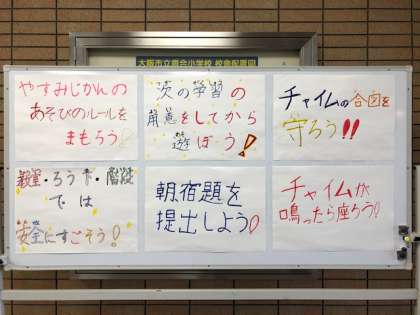 大阪市立豊合小学校 校舎配置図
やすみじかんの
あそびのルールを
まもろう!
次の学習の
準備をしてから
遊ぼう!
チャイムの合図を
守ろう!!
教室・ろう下・階段
では
安全にすごそう!
朝、宿題を
提出しよう!
チャイムが
鳴ったら座ろう!